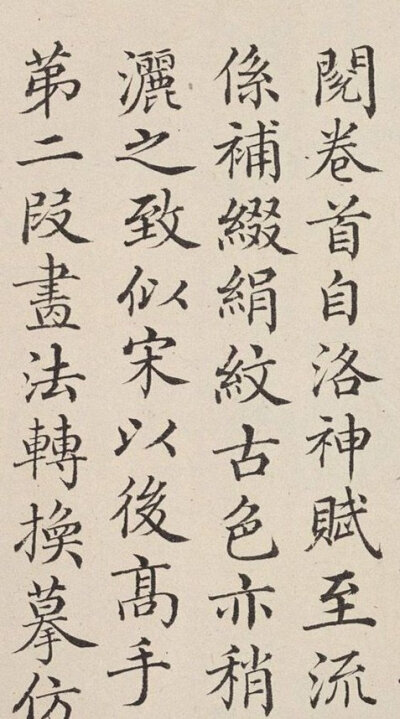 閱卷首自洛神賦至流
係補綴絹紋古色亦稍
灑之致似宋以後高手
第二段畫法轉換摹仿